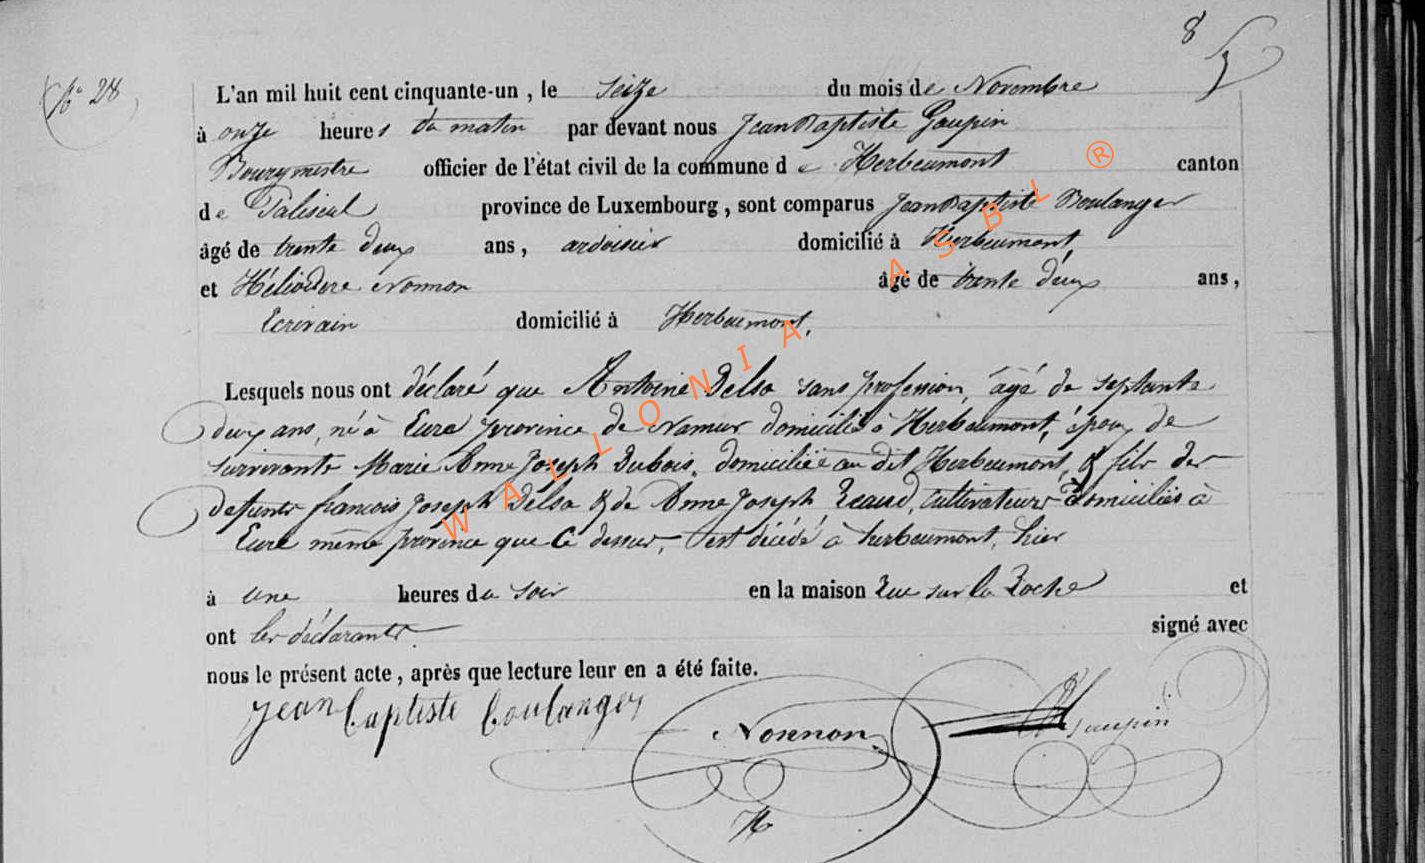 8
N° 28
L'an mil huit cent cinquante-un, le seize du mois de Novembre
à onze heures du matin par devant nous Jean Baptiste Gaupin
Bourgmestre officier de l'état civil de la commune de Herbeumont canton
de Paliseul province de Luxembourg, sont comparus Jean Baptiste Boulanger
âgé de trente deux ans, ardoisier domicilié à Herbeumont,
et Héliodore Nonnon âgé de trente deux ans,
Ecrivain domicilié à Herbeumont,
Lesquels nous ont déclaré que Antoine Delso sans profession, âgé de septante
deux ans, né à Eure province de Namur domicilié à Herbeumont, époux de
survivante Marie Anne Joseph Dubois, domiciliée au dit Herbeumont, & fils des
defunts francois Joseph Delso & de Anne Joseph cultivateurs domiciliés à
Eure même province que ce dessus, est décédé à herbeumont, hier
à une heures du soir en la maison Rue sur la Roche et
ont les déclarants signé avec
nous le présent acte, après que lecture leur en a été faite.
Jean baptiste boulanger Nonnon Gaupin
WALLONIA ASBL ®